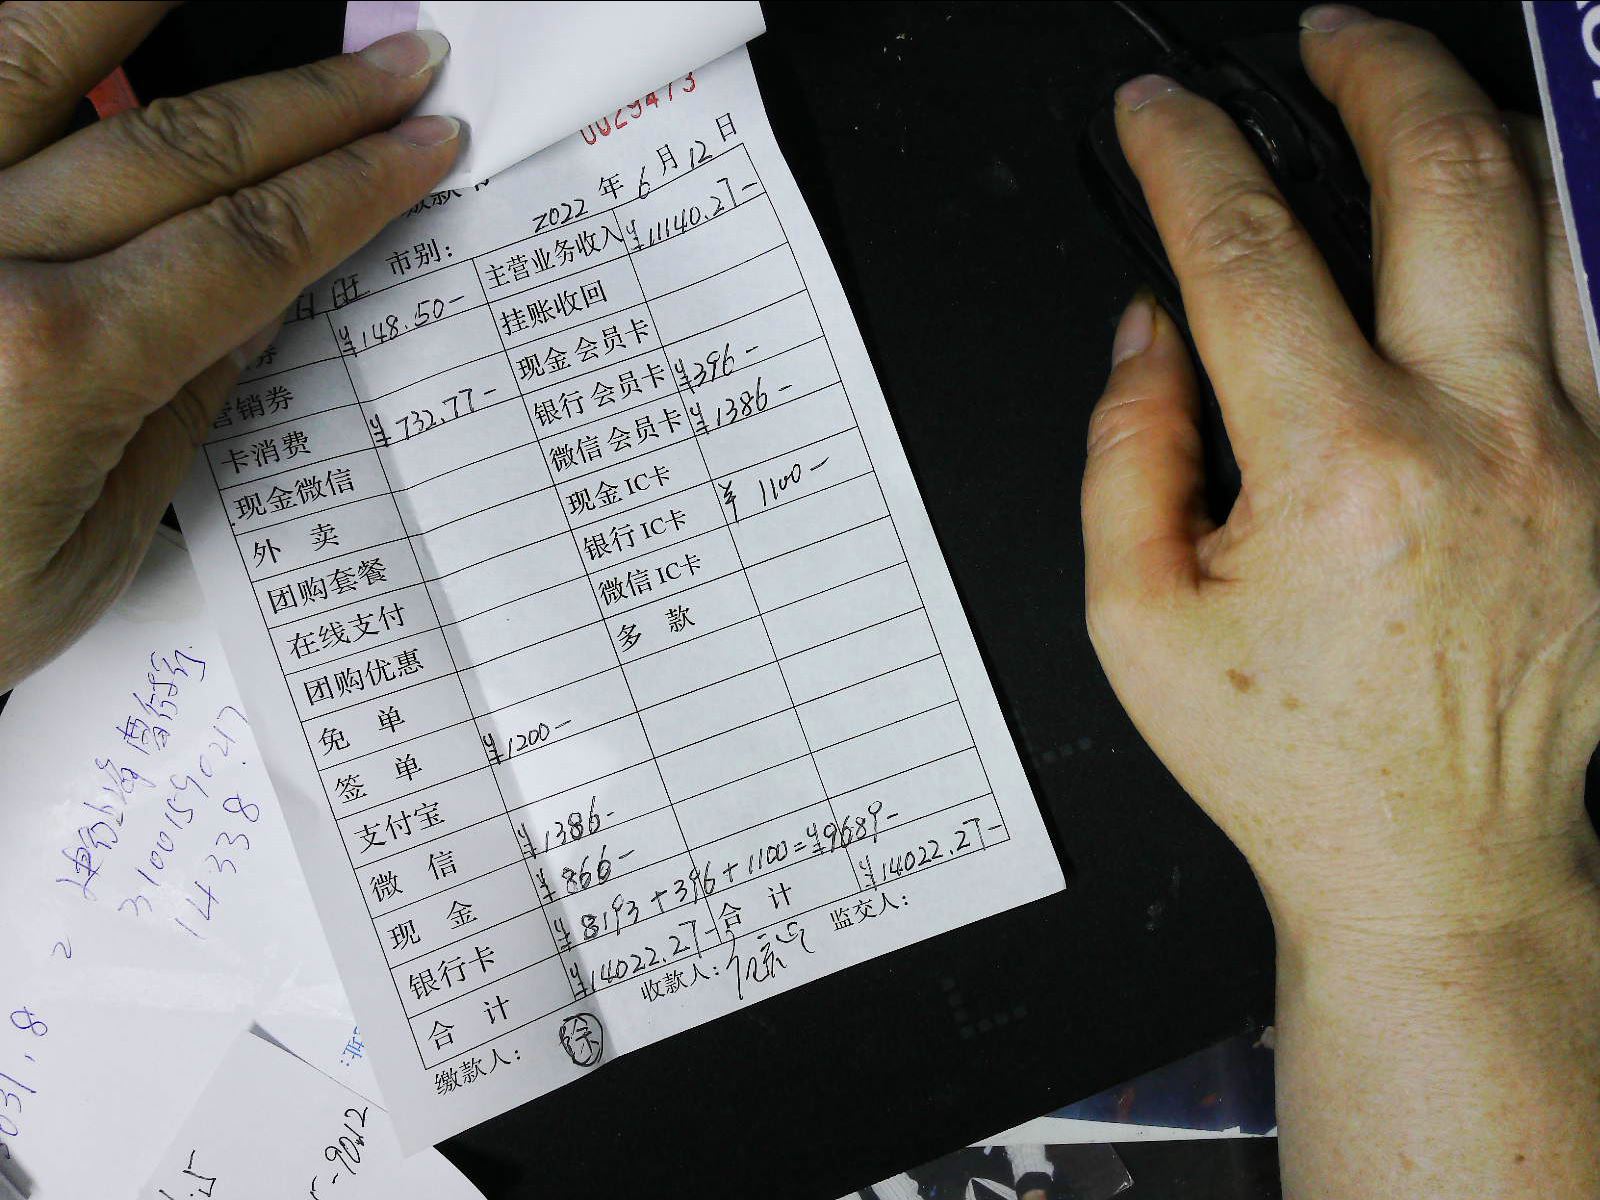 0029473
缴款
2022 年 6 月 12 日
市别:
券 ¥148.50- 主营业务收入 ¥11140.27-
营销券 挂账收回
卡消费 ¥732.77- 现金会员卡
现金微信 银行会员卡 ¥396-
外卖 微信会员卡 ¥1386-
团购套餐 现金IC卡
在线支付 银行IC卡 ¥1100-
团购优惠 微信IC卡
免单 多款
签单 ¥1200-
支付宝
微信 ¥1386-
现金 ¥866-
银行卡 ¥8193+396+1100=¥9689-
合计 ¥14022.27- 合计 ¥14022.27-
缴款人: 徐 收款人: 监交人:
3100159027
14338
2
031.8
-9012
.5